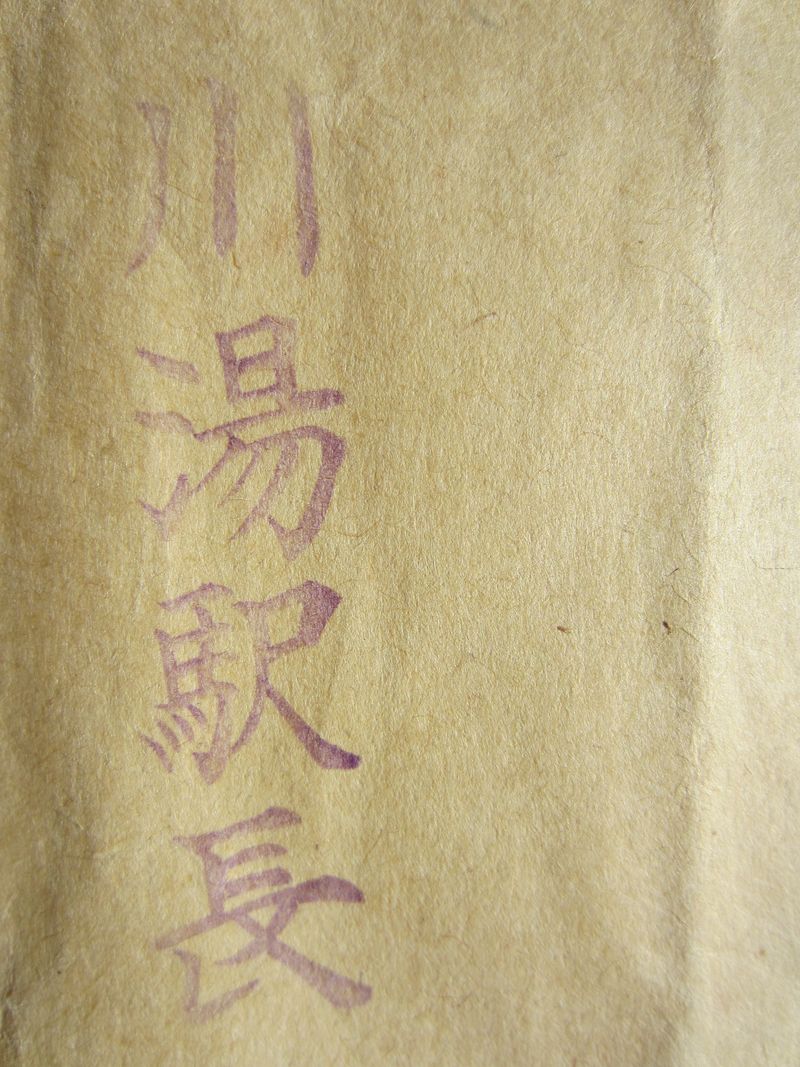 川湯駅長